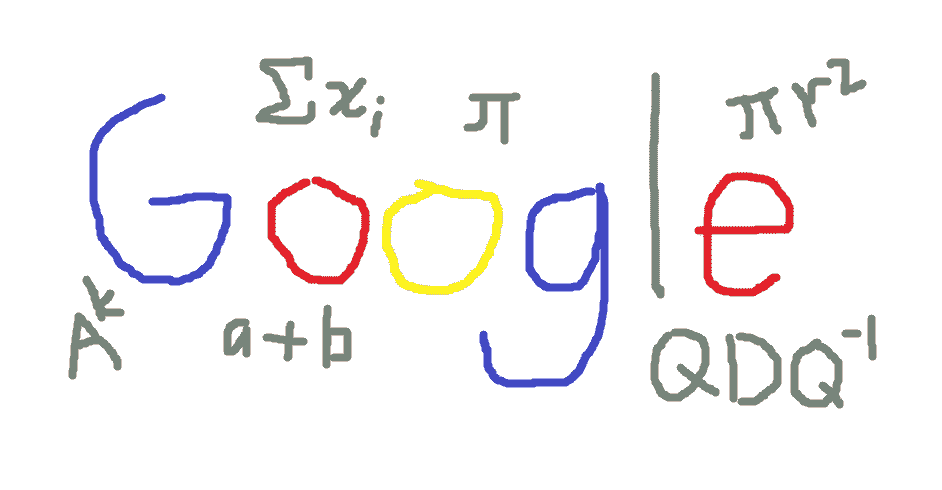 Σxᵢ π πr²
Google
Aᵏ a+b QDQ⁻¹